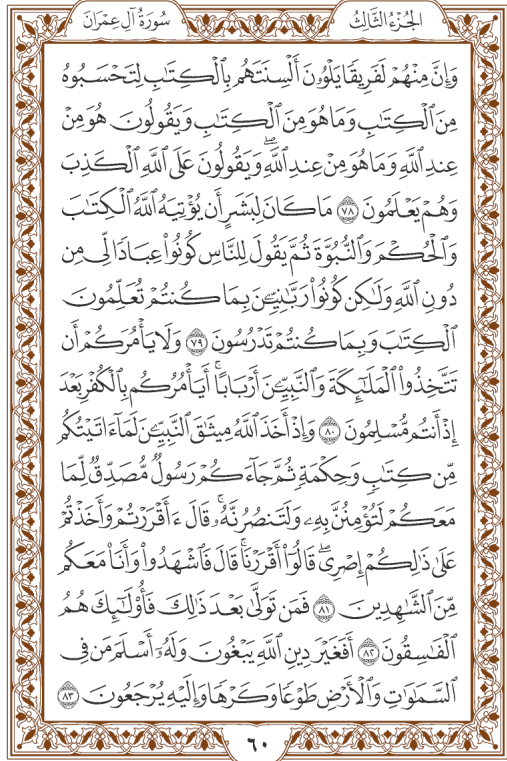 الجُزْءُ الثَّالِثُ
سُورَةُ آلِ عِمْرَانَ
وَإِنَّ مِنْهُمْ لَفَرِيقًا يَلْوُۥنَ أَلْسِنَتَهُم بِالْكِتَٰبِ لِتَحْسَبُوهُ
مِنَ الْكِتَٰبِ وَمَا هُوَ مِنَ الْكِتَٰبِ وَيَقُولُونَ هُوَ مِنْ
عِندِ اللَّهِ وَمَا هُوَ مِنْ عِندِ اللَّهِۖ وَيَقُولُونَ عَلَى اللَّهِ الْكَذِبَ
وَهُمْ يَعْلَمُونَ ٧٨ مَا كَانَ لِبَشَرٍ أَن يُؤْتِيَهُ اللَّهُ الْكِتَٰبَ
وَالْحُكْمَ وَالنُّبُوَّةَ ثُمَّ يَقُولَ لِلنَّاسِ كُونُوا۟ عِبَادًا لِّى مِن
دُونِ اللَّهِ وَلَٰكِن كُونُوا۟ رَبَّٰنِيِّـۧنَ بِمَا كُنتُمْ تُعَلِّمُونَ
الْكِتَٰبَ وَبِمَا كُنتُمْ تَدْرُسُونَ ٧٩ وَلَا يَأْمُرَكُمْ أَن
تَتَّخِذُوا۟ الْمَلَٰٓئِكَةَ وَالنَّبِيِّـۧنَ أَرْبَابًاۚ أَيَأْمُرُكُم بِالْكُفْرِ بَعْدَ
إِذْ أَنتُم مُّسْلِمُونَ ٨٠ وَإِذْ أَخَذَ اللَّهُ مِيثَٰقَ النَّبِيِّـۧنَ لَمَآ ءَاتَيْتُكُم
مِّن كِتَٰبٍ وَحِكْمَةٍ ثُمَّ جَآءَكُمْ رَسُولٌ مُّصَدِّقٌ لِّمَا
مَعَكُمْ لَتُؤْمِنُنَّ بِهِۦ وَلَتَنصُرُنَّهُۥۚ قَالَ ءَأَقْرَرْتُمْ وَأَخَذْتُمْ
عَلَىٰ ذَٰلِكُمْ إِصْرِىۖ قَالُوٓا۟ أَقْرَرْنَاۚ قَالَ فَاشْهَدُوا۟ وَأَنَا۠ مَعَكُم
مِّنَ الشَّٰهِدِينَ ٨١ فَمَن تَوَلَّىٰ بَعْدَ ذَٰلِكَ فَأُو۟لَٰٓئِكَ هُمُ
الْفَٰسِقُونَ ٨٢ أَفَغَيْرَ دِينِ اللَّهِ يَبْغُونَ وَلَهُۥٓ أَسْلَمَ مَن فِى
السَّمَٰوَٰتِ وَالْأَرْضِ طَوْعًا وَكَرْهًا وَإِلَيْهِ يُرْجَعُونَ ٨٣
٦٠